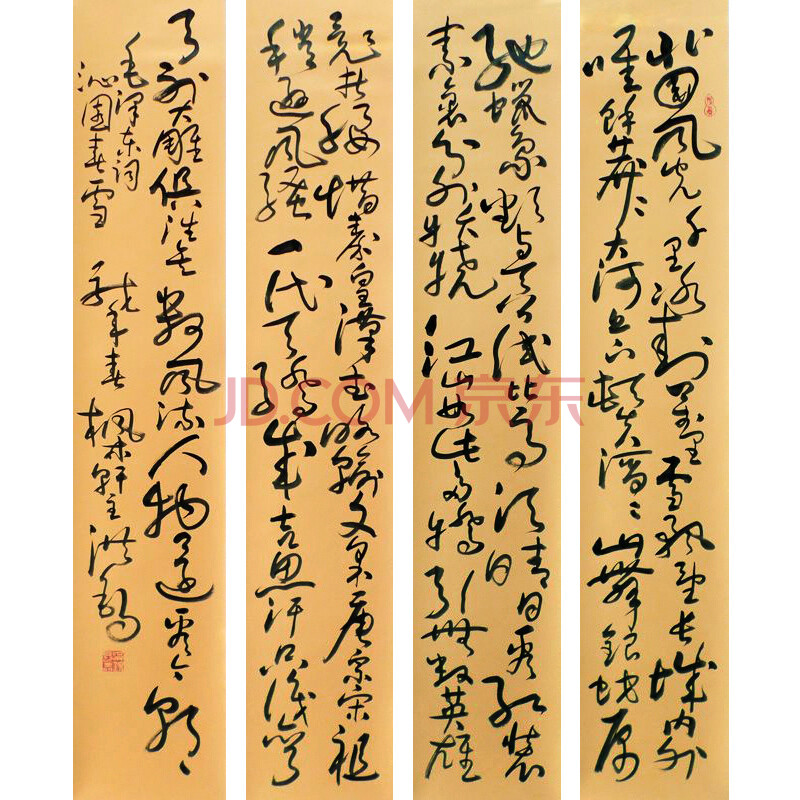 北国风光千里冰封万里雪飘望长城内外
唯餘莽〻大河上下頓失滔〻山舞銀蛇原
馳蠟象欲与天公試比高須晴日看红装
素裹分外妖娆江山如此多嬌引無數英雄
竞折腰惜秦皇漢武略输文采唐宗宋祖
稍遜风骚一代天骄成吉思汗只識彎
弓射大雕俱往矣数风流人物還看今朝
毛泽东词
沁園春雪
年春
JD.COM 京东